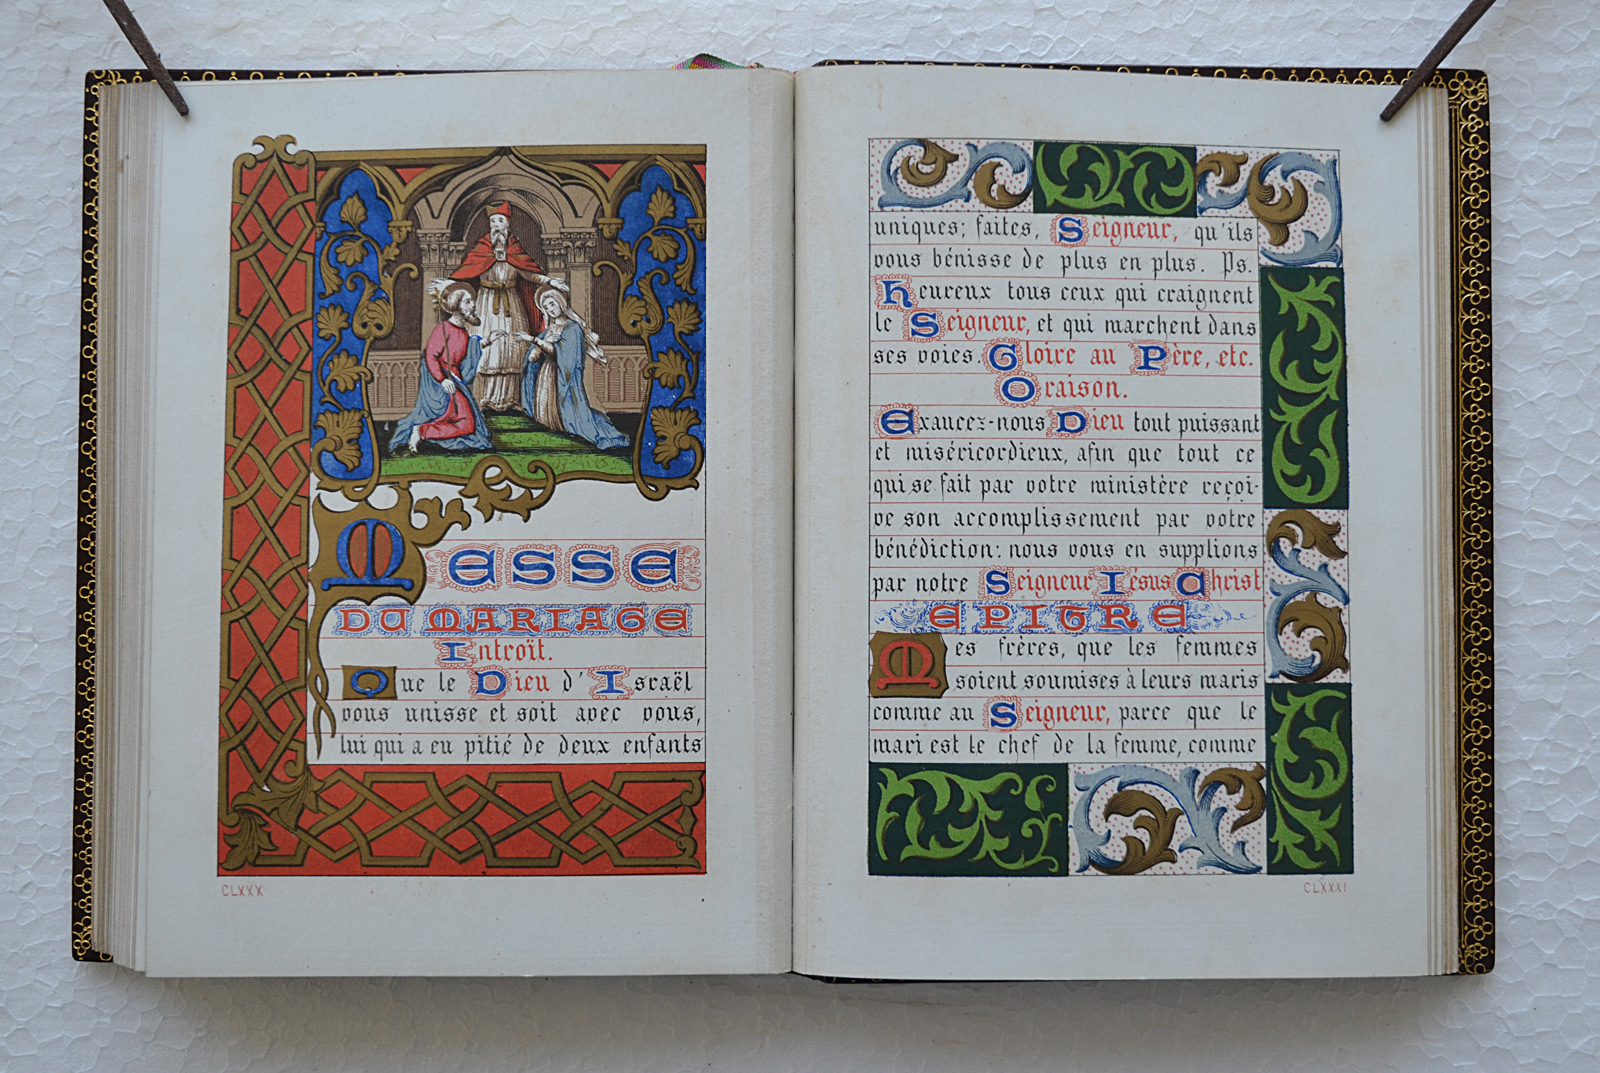 MESSE
DU MARIAGE
Introït.
Que le Dieu d'Israël
vous unisse et soit avec vous,
lui qui a eu pitié de deux enfants
CLXXX
uniques; faites, Seigneur, qu'ils
vous bénisse de plus en plus. Ps.
heureux tous ceux qui craignent
le Seigneur, et qui marchent dans
ses voies. Gloire au Père, etc.
Oraison.
Exaucez-nous Dieu tout puissant
et miséricordieux, afin que tout ce
qui se fait par votre ministère reçoi-
ve son accomplissement par votre
bénédiction: nous vous en supplions
par notre Seigneur Iésus Christ
EPITRE
Mes frères, que les femmes
soient soumises à leurs maris
comme au Seigneur, parce que le
mari est le chef de la femme, comme
CLXXXI